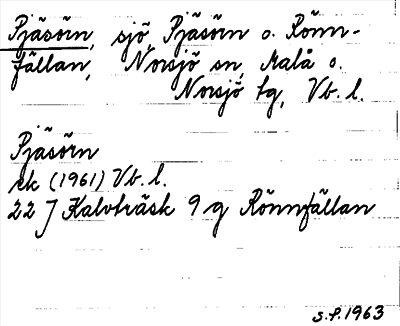 Pjäsörn, sjö, Pjäsörn o. Rönn-
fällan, Norsjö sn, Malå o.
Norsjö tg, Vb. l.
Pjäsörn
ek (1961) Vb. l.
22 J Kalvträsk 9 g Rönnfällan
S.P. 1963